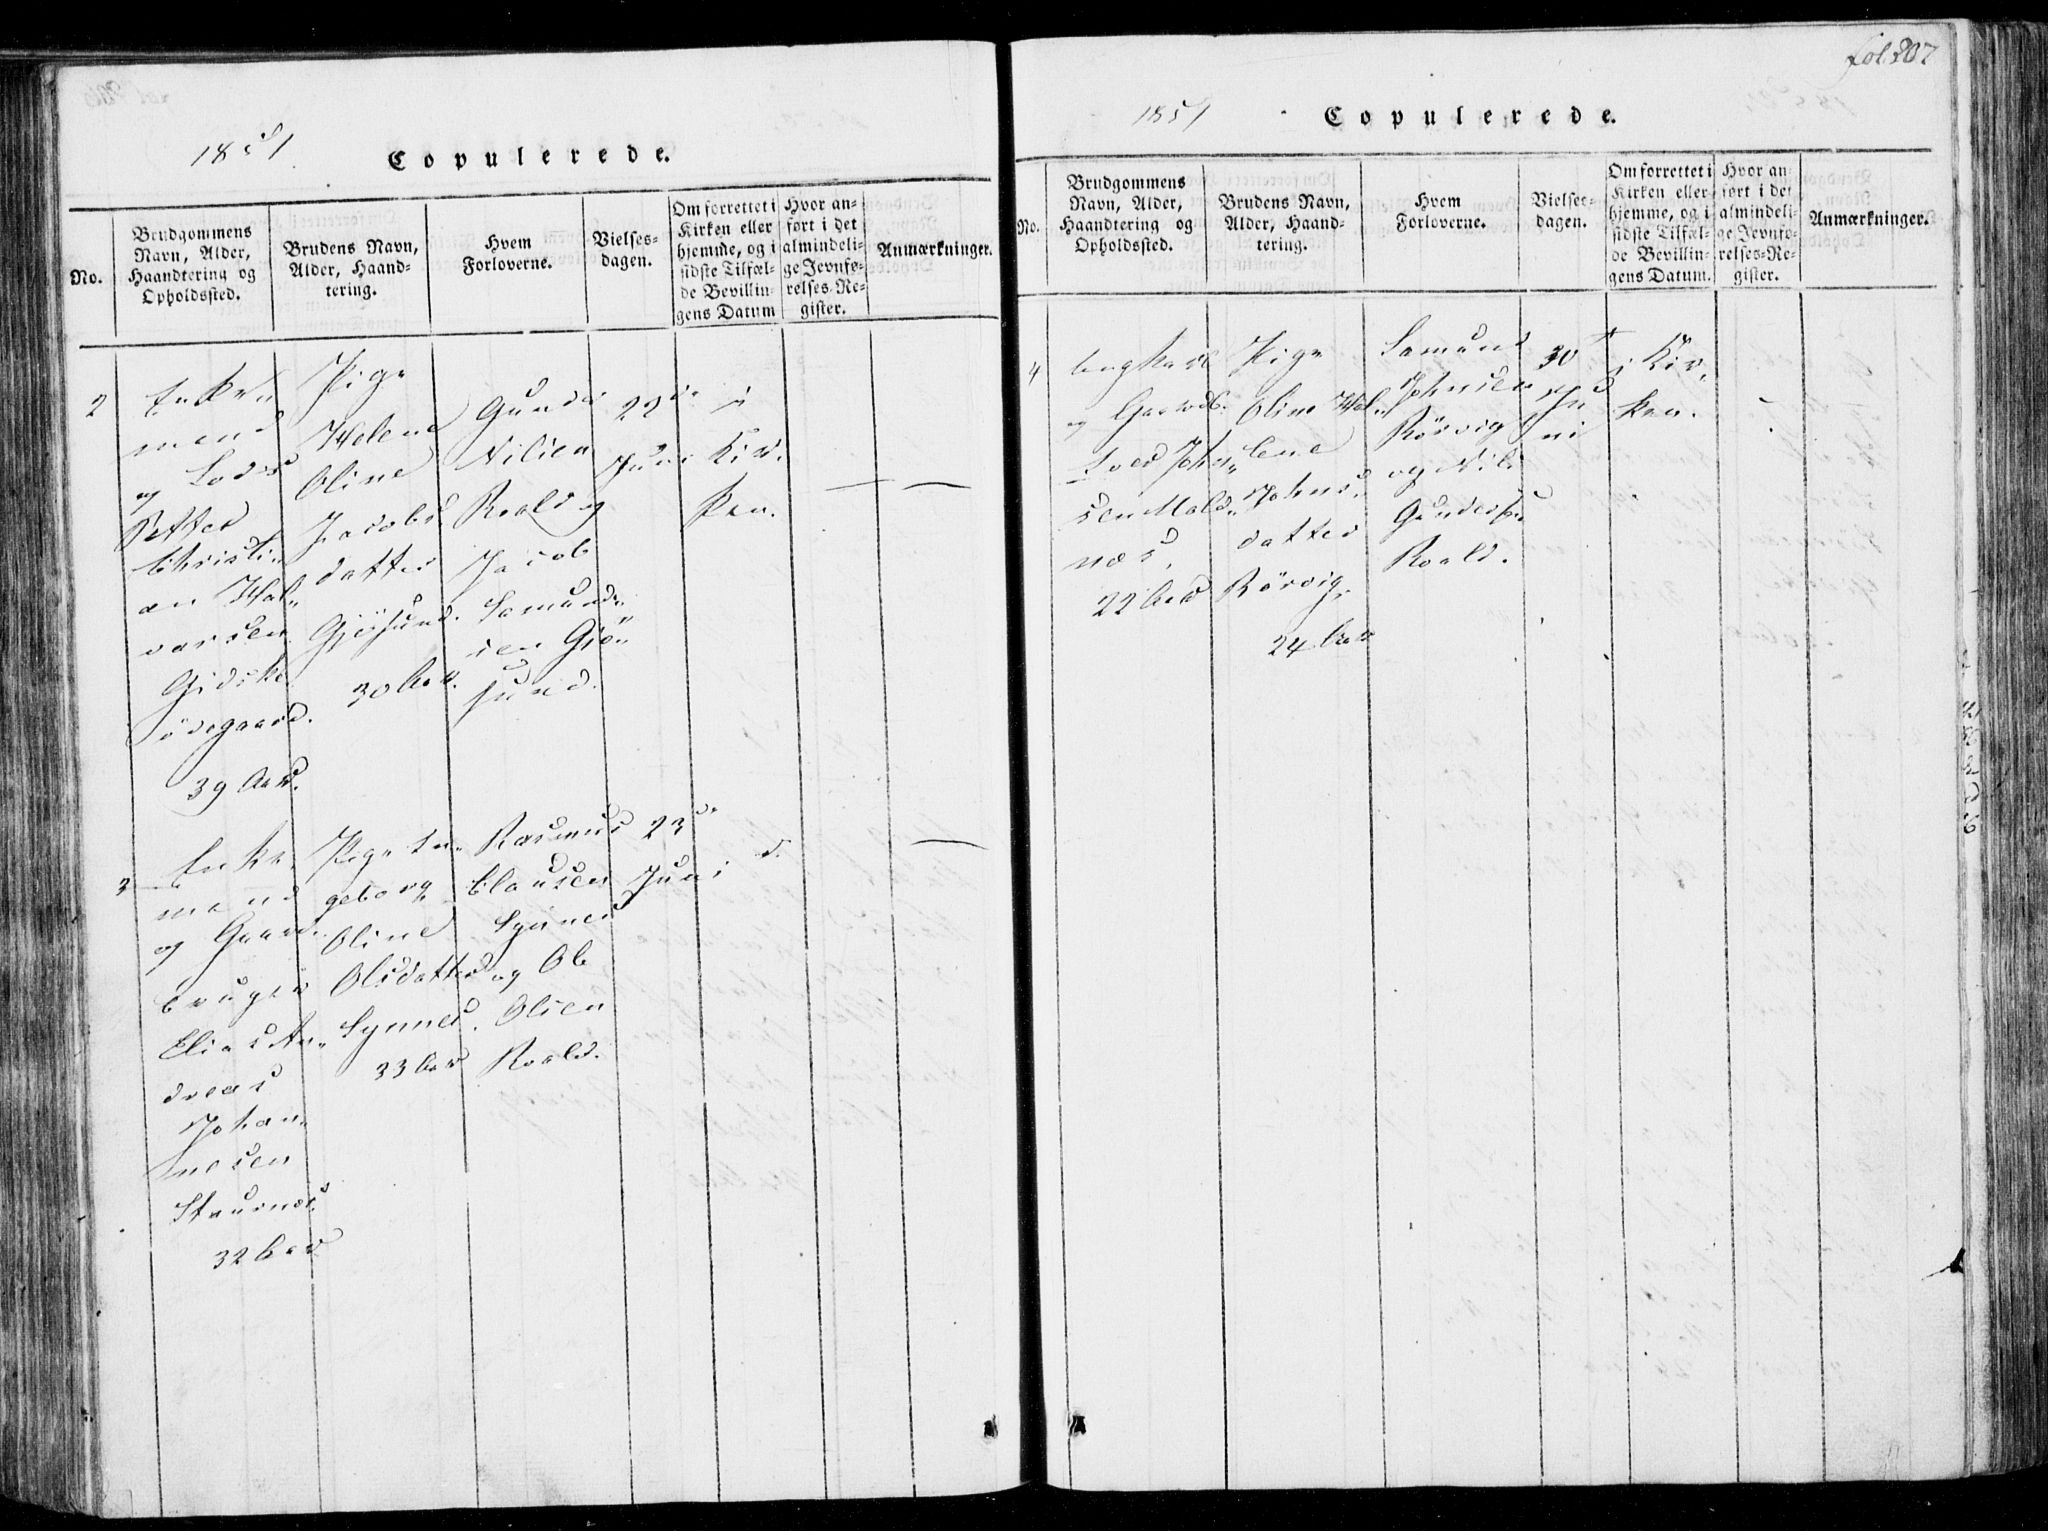 1851
Copulerede.
No.
Brudgommens
Navn, Alder,
Haandtering og
Opholdssted.
Brudens Navn,
Alder, Haand-
tering.
Hvem
Forloverne.
Vielses-
dagen.
Om forrettet i
Kirken eller
hjemme, og i
sidste Tilfæl-
de Bevillin-
gens Datum
Hvor an-
ført i det
almindeli-
ge Jevnfø-
relses-Re-
gister.
Anmærkninger.
2
Enke-
mand
og Lods
Petter
Christi-
an Hal-
varsen
Gidske
ödegaard.
39 Aar.
Pige
Helene
Oline
Jacobs
datter
Gjösund.
30 Aar.
Gunder
Nilsen
Roald og
Jacob
Samund-
sen Gjö-
sund.
22de
Juni
i
Kir-
ken.
3
Enke-
mand
og Gaard-
bruger
Elias An-
dreas
Johan-
nesen
Staurnes
32 Aar
Pige In-
geborg
Oline
Olsdatter
Synnes.
33 Aar
Rasmus
Clausen
Synnes
og Ole
Olsen
Roald.
23de
Juni
d.
fol. 207
1851
Copulerede.
No.
Brudgommens
Navn, Alder,
Haandtering og
Opholdssted.
Brudens Navn,
Alder, Haand-
tering.
Hvem
Forloverne.
Vielses-
dagen.
Om forrettet i
Kirken eller
hjemme, og i
sidste Tilfæl-
de Bevillin-
gens Datum.
Hvor an-
ført i det
almindeli-
ge Jevnfø-
relses-Re-
gister.
Anmærkninger.
4
Ungkarl
og Gaardb.
Iver John-
sen Mold-
næs,
22 Aar
Pige
Oline Hel-
lene
Johns-
datter
Rörvig,
24 Aar
Samund
Johnsen
Rörvig
og Nils
Gundersen
Roald.
30te
Ju
ni
i Kir-
ken.